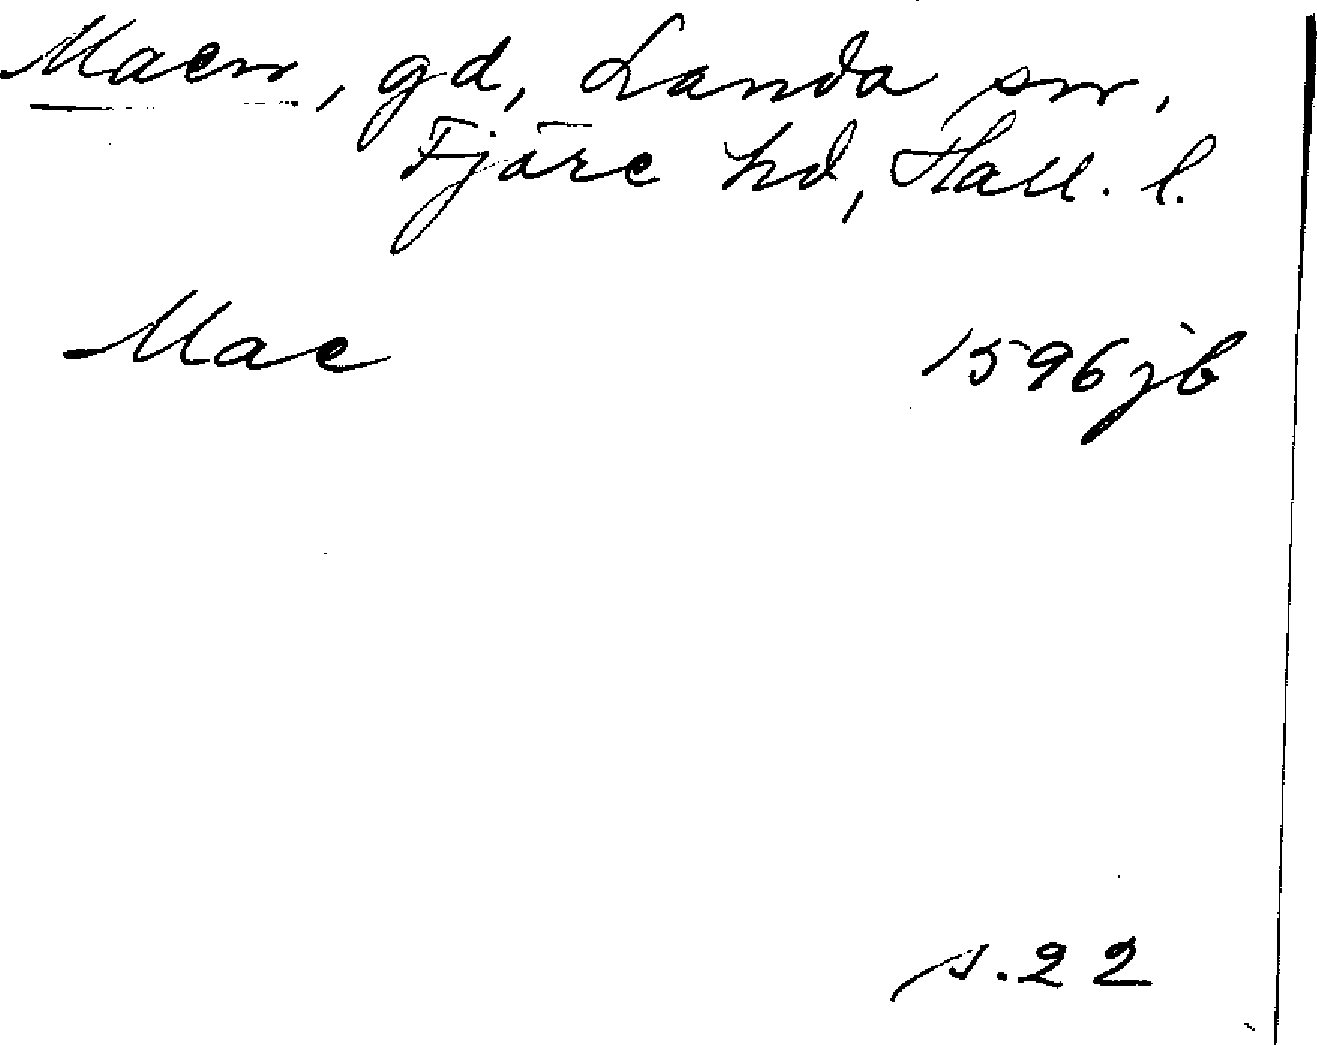 Maen, gd, Landa sn,
Fjäre hd, Hall. l.
Mae 1596 jb
s. 22